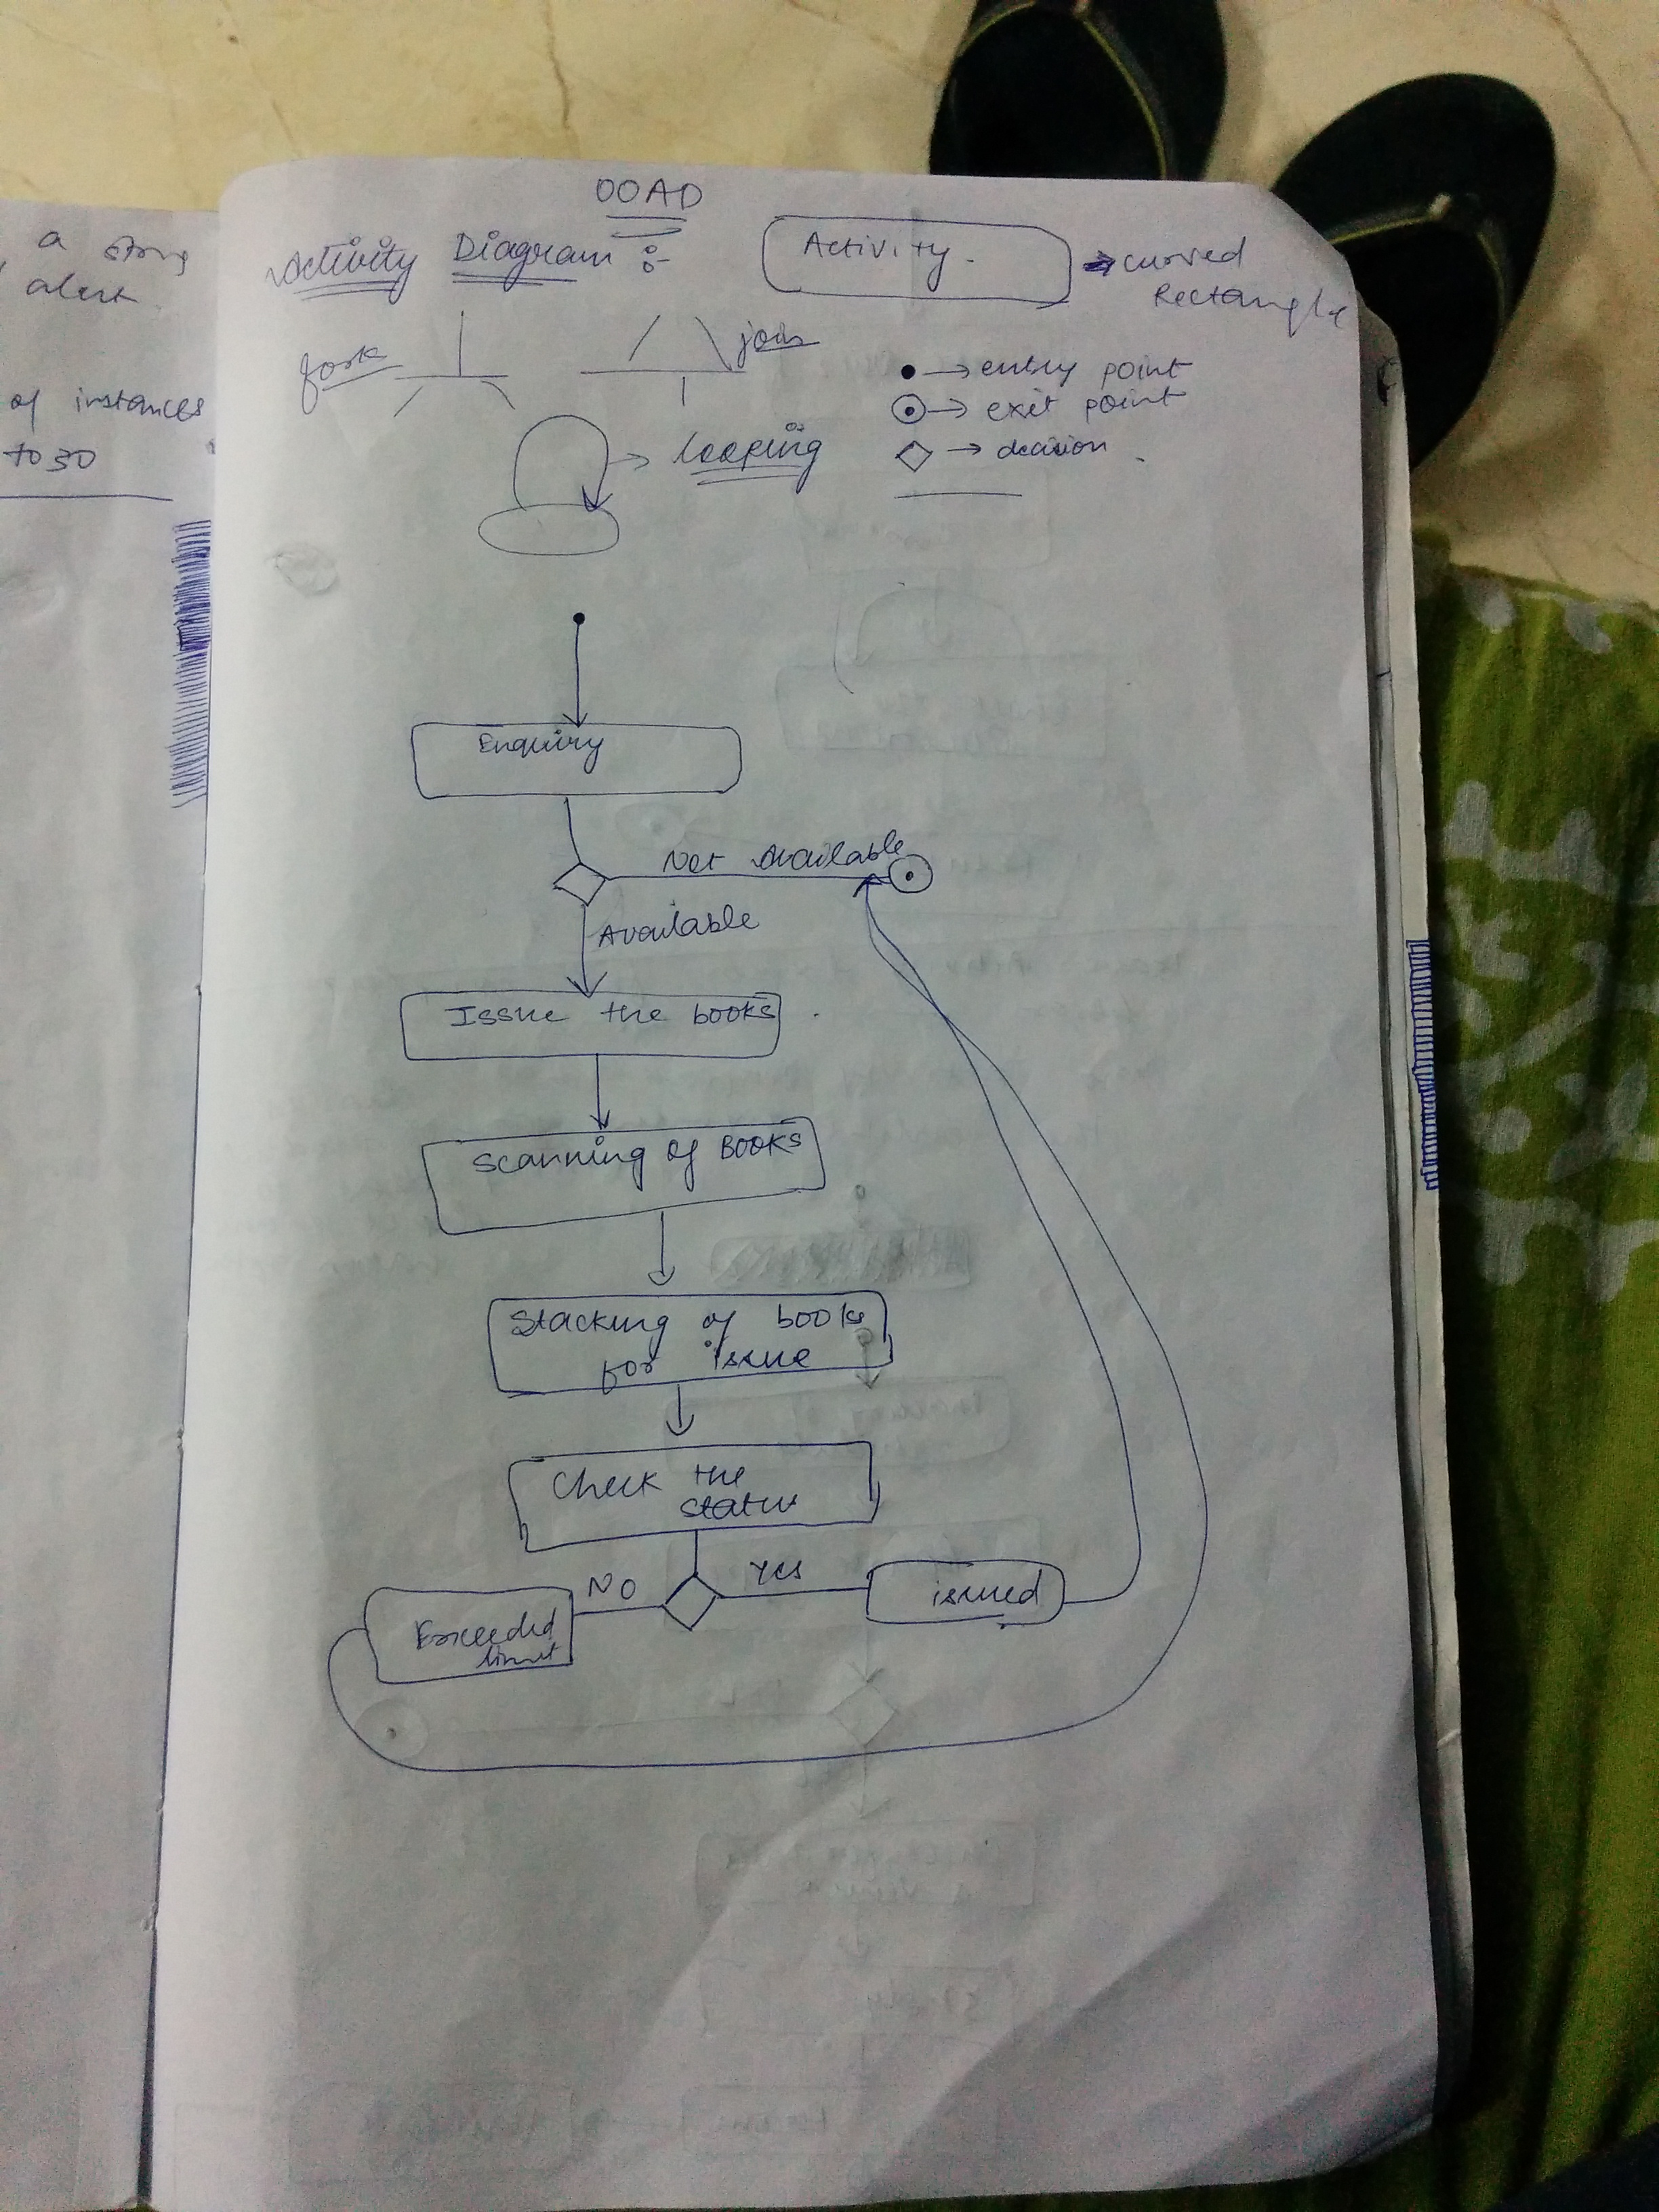 a
alert
of instances
to 30
OOAD
Activity Diagram :-
Activity.
→ curved
Rectangle
fork
join
→ looping
→ entry point
→ exit point
→ decision
Enquiry
Not Available
Available
Issue the books
scanning of BOOKS
Stacking of books
for issue
Check the
status
NO
Yes
issued
Exceeded
limit